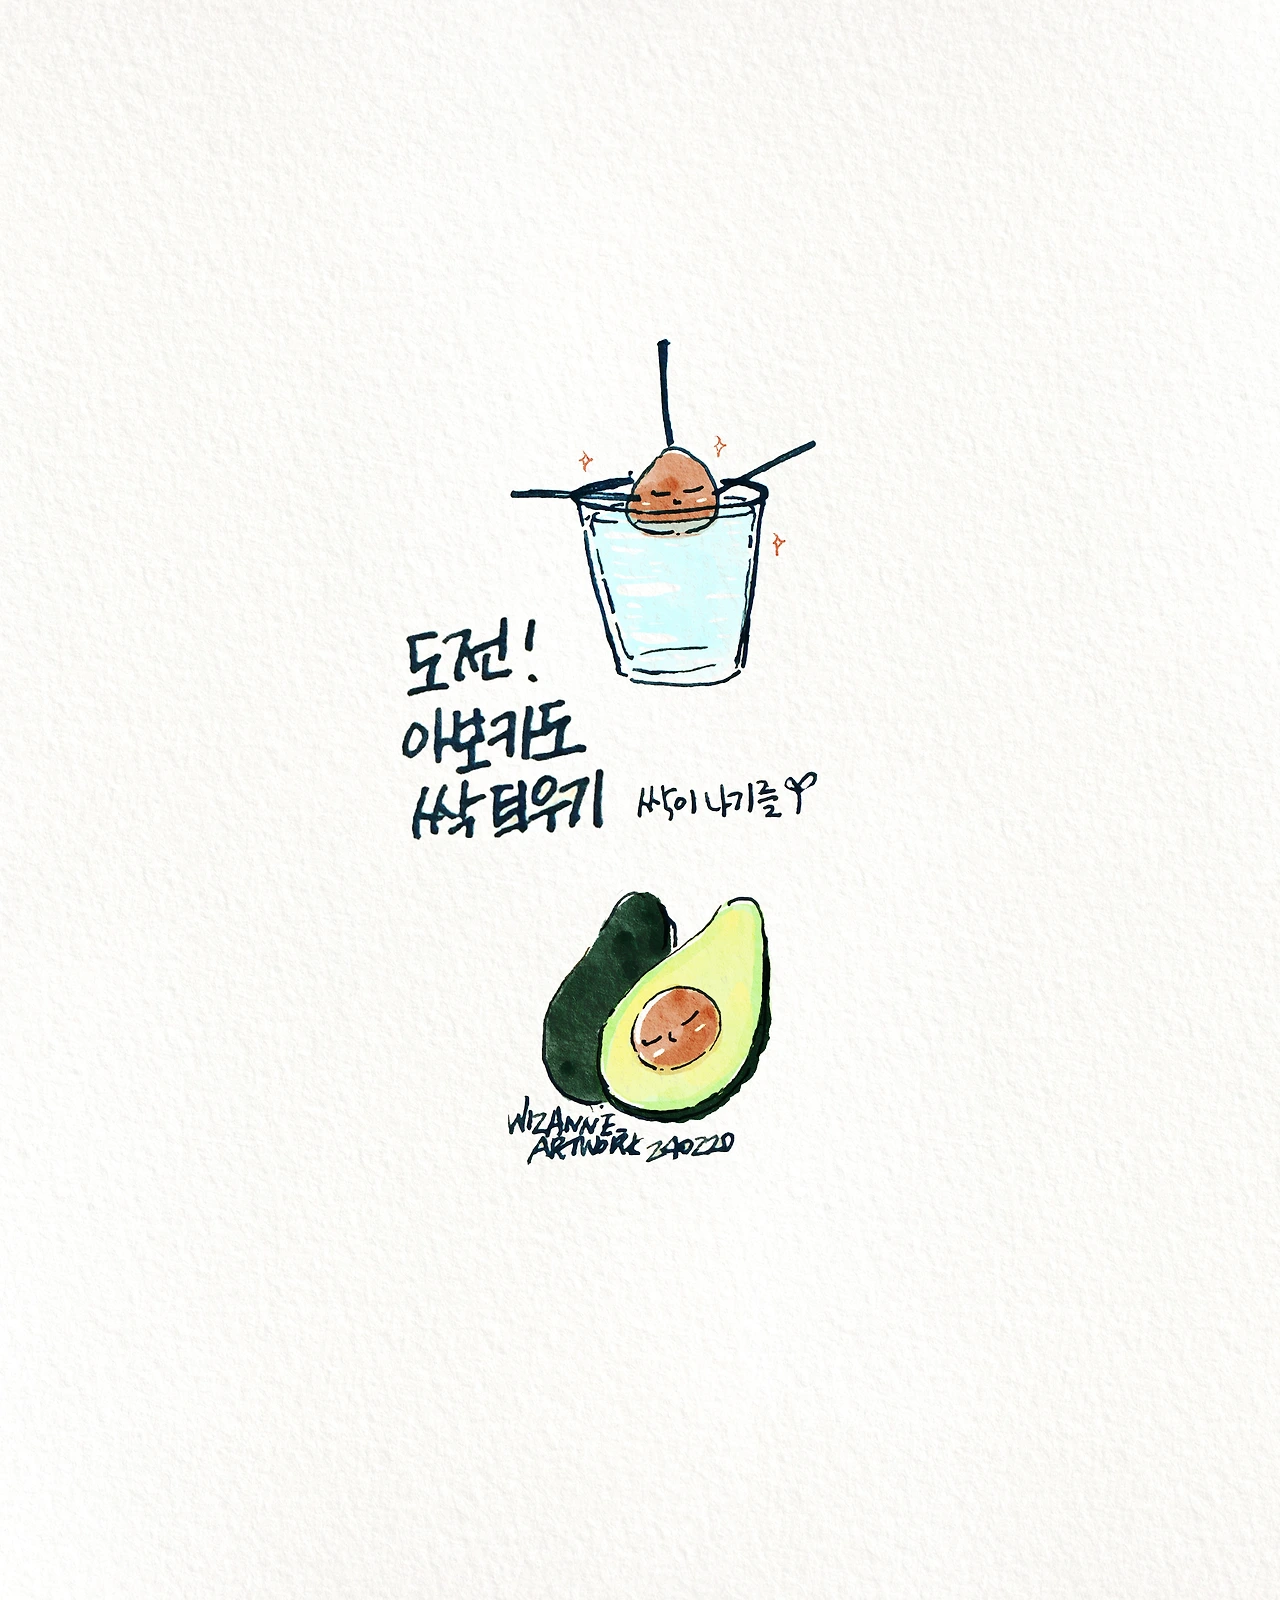 도전!
아보카도
싹 틔우기
싹이 나기를
WIZANNE_
ARTWORK 240220